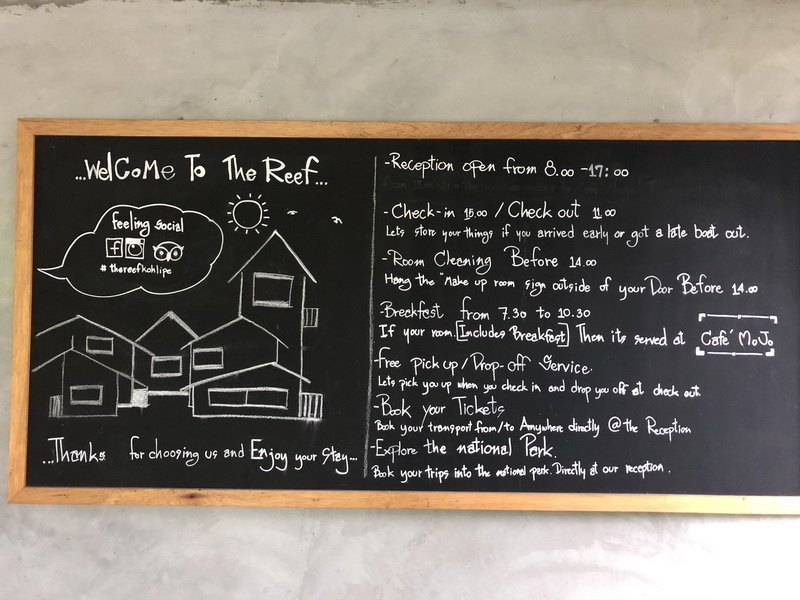 ...WelCoMe To The Reef...
feeling social
f
# thereefkohlipe
...Thanks for choosing us and Enjoy your stay...
-Reception open from 8.00 -17:00
-Check-in 15.00 / Check out 11.00
Lets store your things if you arrived early or got a late boat out.
-Room Cleaning Before 14.00
Hang the "Make up room sign outside of your Door Before 14.00
-Breakfast from 7.30 to 10.30
If your room Includes Breakfast Then its served at Cafe' MoJo
-free Pick up / Drop-off Service.
Lets pick you up when you check in and drop you off at check out.
-Book your Tickets
Book your transport from/to Anywhere directly @ the Reception
-Explore the national Park.
Book your trips into the national park. Directly at our reception.